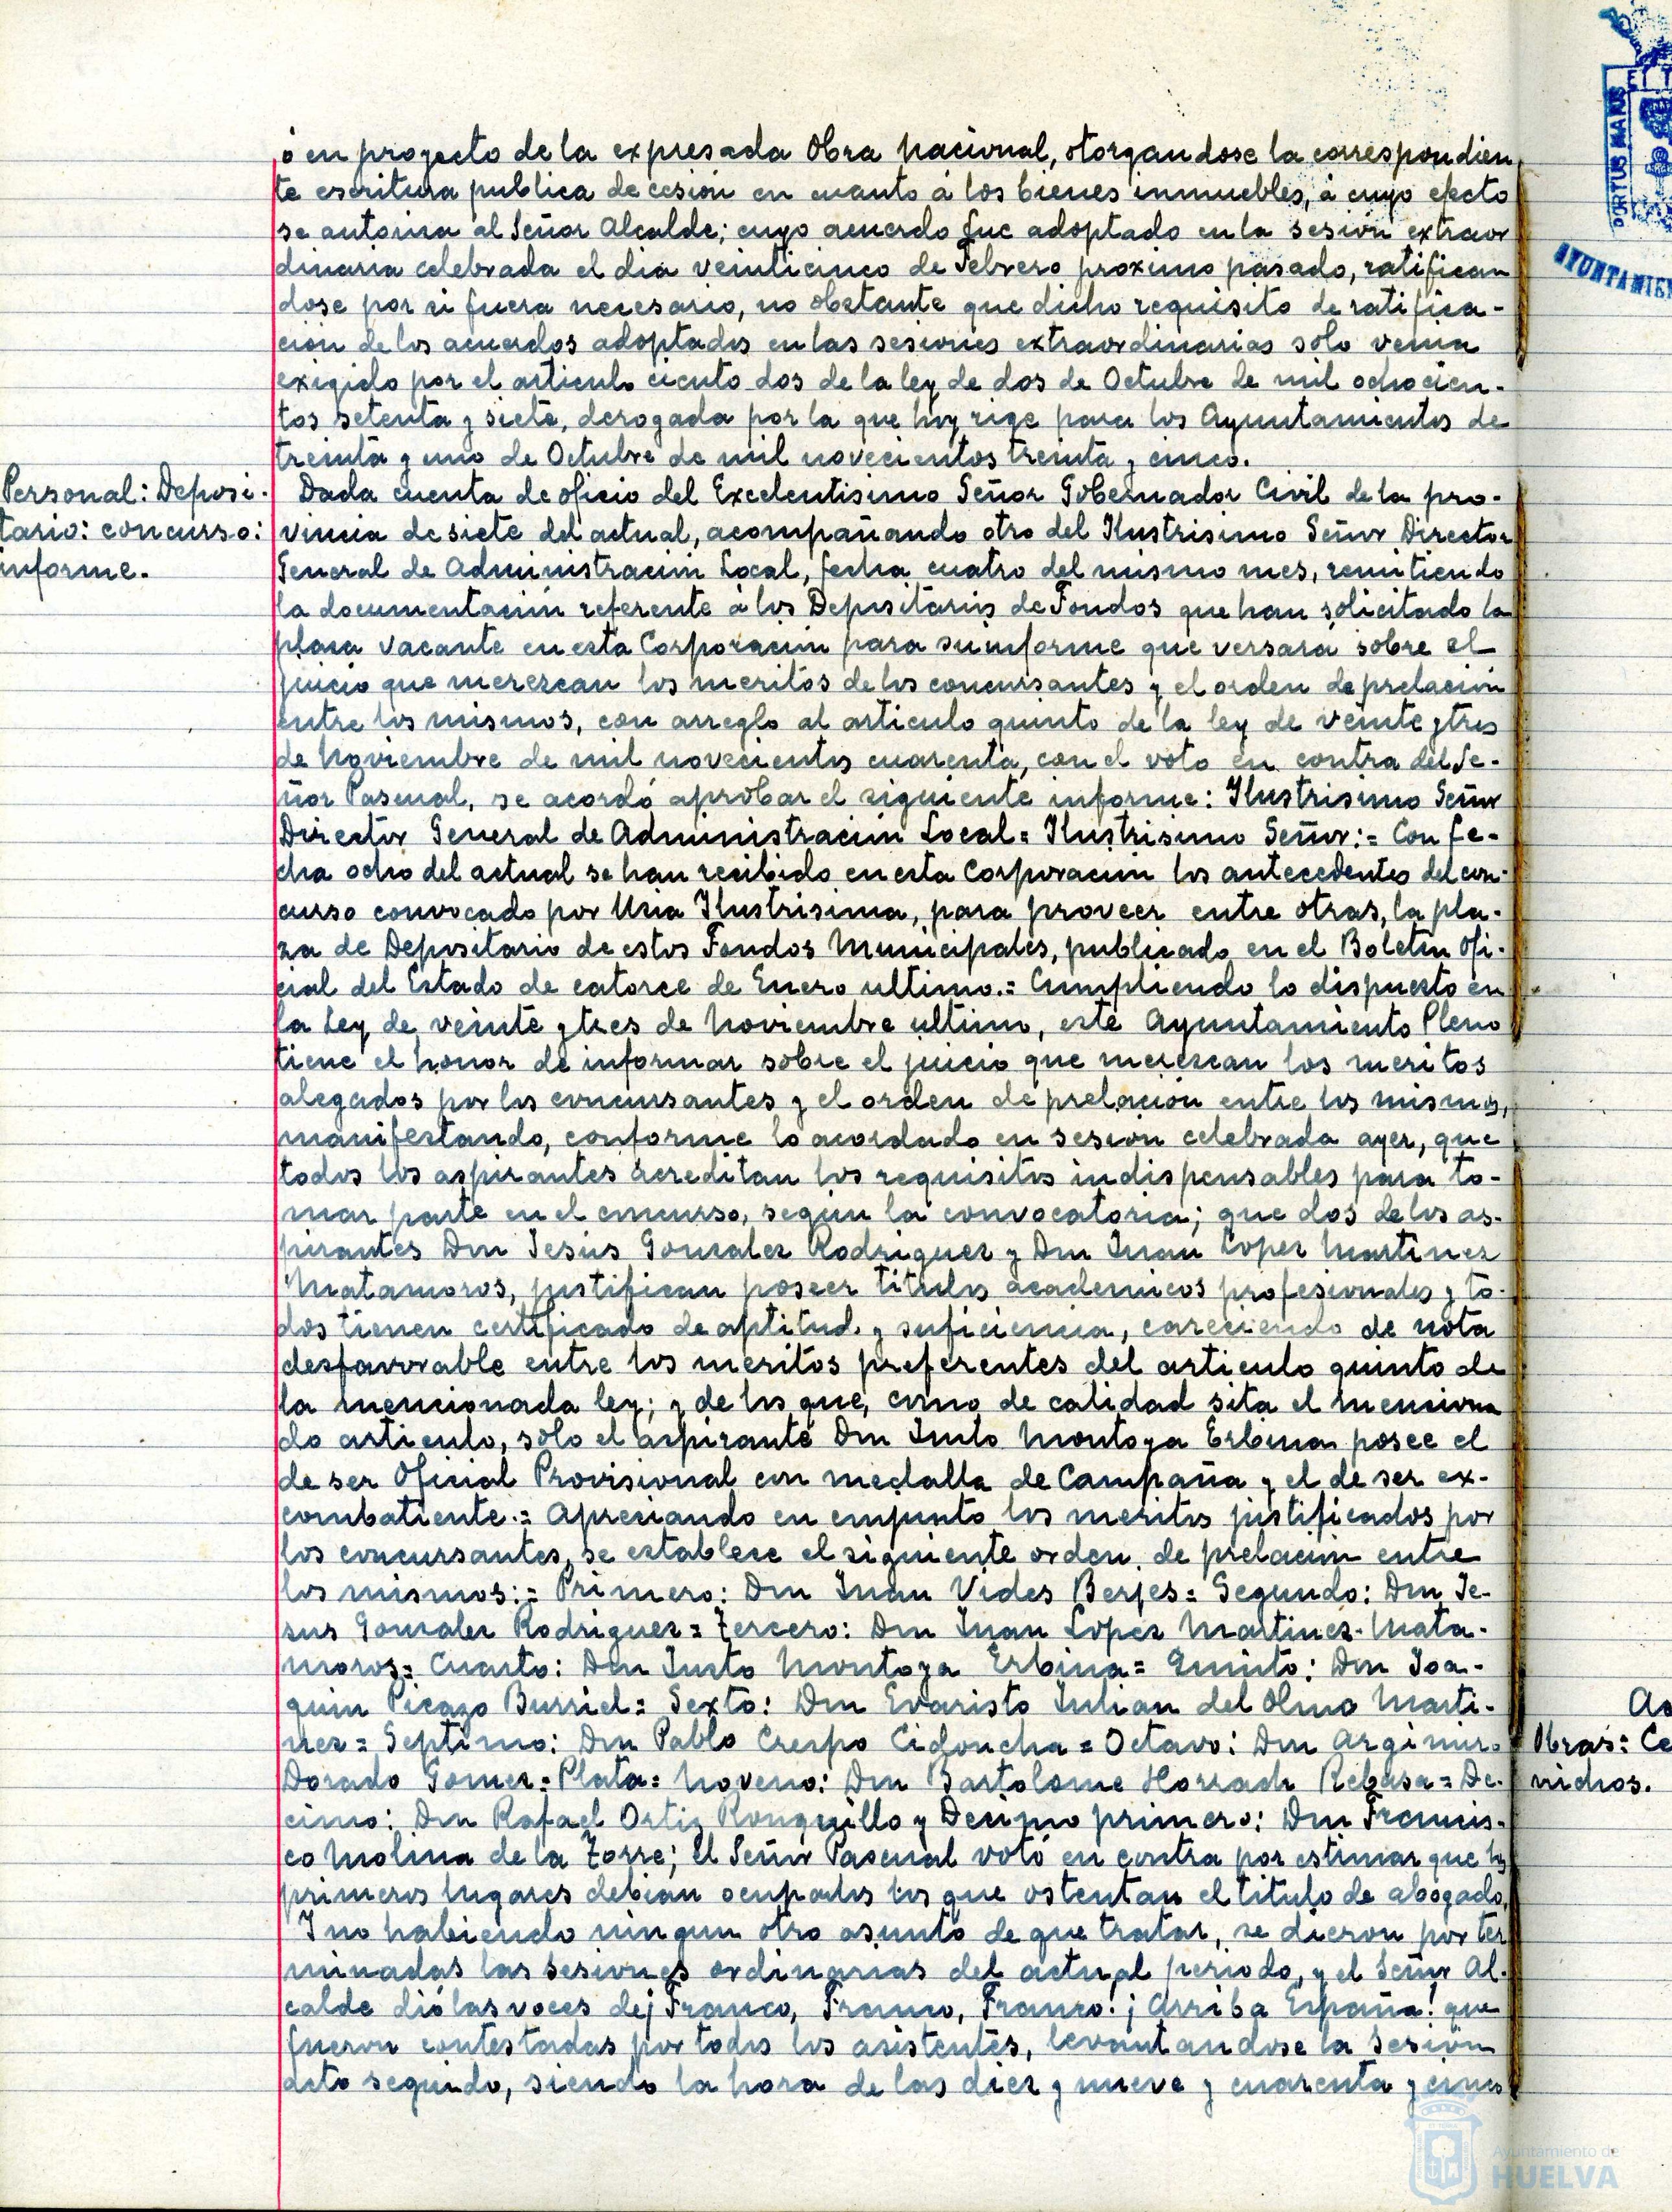 ó en proyecto de la expresada Obra Nacional, otorgandose la correspondien
te escritura publica de cesión en cuanto á los bienes inmuebles, á cuyo efecto
se autoriza al Señor Alcalde; cuyo acuerdo fue adoptado en la sesión extraor
dinaria celebrada el dia veinticinco de Febrero proximo pasado, ratifican
dose por si fuera necesario, no obstante que dicho requisito de ratifica-
ción de los acuerdos adoptados en las sesiones extraordinarias sólo venia
exigido por el articulo ciento dos de la ley de dos de Octubre de mil ochocien-
tos setenta y siete, derogada por la que hoy rige para los Ayuntamientos de
treinta y uno de Octubre de mil novecientos treinta y cinco.
Personal: Deposi-
tario: concurso:
informe.
Dada cuenta de oficio del Excelentisimo Señor Gobernador Civil de la pro-
vincia de siete del actual, acompañando otro del Ilustrisimo Señor Director
General de Administración Local, fecha cuatro del mismo mes, remitiendo
la documentación referente á los Depositarios de Fondos que han solicitado la
plaza vacante en esta Corporación para su informe que versará sobre el
juicio que merezcan los meritos de los concursantes y el orden de prelación
entre los mismos, con arreglo al articulo quinto de la ley de veinte y tres
de Noviembre de mil novecientos cuarenta, con el voto en contra del Se-
ñor Pascual, se acordó aprobar el siguiente informe: Ilustrisimo Señor
Director General de Administración Local= Ilustrisimo Señor:= Con fe-
cha ocho del actual se han recibido en esta Corporación los antecedentes del con-
curso convocado por Usia Ilustrisima, para proveer entre otras, la pla-
za de Depositario de estos Fondos Municipales, publicado en el Boletin Ofi-
cial del Estado de catorce de Enero ultimo.= Cumpliendo lo dispuesto en
la Ley de veinte y tres de Noviembre ultimo, este Ayuntamiento Pleno
tiene el honor de informar sobre el juicio que merezcan los meritos
alegados por los concursantes y el orden de prelación entre los mismos,
manifestando, conforme lo acordado en sesion celebrada ayer, que
todos los aspirantes acreditan los requisitos indispensables para to-
mar parte en el concurso, según la convocatoria; que dos de los as-
pirantes Don Jesús Gonzalez Rodriguez y Don Juan Lopez Martinez
Matamoros, justifican poseer titulos academicos profesionales y to-
dos tienen certificado de aptitud y suficiencia, careciendo de nota
desfavorable entre los meritos preferentes del articulo quinto de
la mencionada ley; y de los que, como de calidad sita el menciona
do articulo, sólo el aspirante Don Justo Montoya Erbina posee el
de ser Oficial Provisional con medalla de Campaña y el de ser ex-
combatiente.= Apreciando en conjunto los meritos justificados por
los concursantes, se establece el siguiente orden de prelación entre
los mismos:= Primero: Don Juan Vides Berjes= Segundo: Don Je-
sus Gonzalez Rodriguez= Tercero: Don Juan Lopez Martinez-Mata-
moros= Cuarto: Don Justo Montoya Erbina= Quinto: Don Joa-
quin Picazo Burriel= Sexto: Don Evaristo Julian del Olmo Marti-
nez= Septimo: Don Pablo Crespo Cidoncha= Octavo: Don Argimiro
Dorado Gomez-Plata= Noveno: Don Bartolome Horrach Rebasa= De-
cimo: Don Rafael Ortiz Ronquillo y Decimo primero: Don Francis-
co Molina de la Torre; el Señor Pascual votó en contra por estimar que los
primeros lugares debian ocuparlos los que ostentan el titulo de abogado.
Y no habiendo ningun otro asunto de que tratar, se dieron por ter
minadas las sesiones ordinarias del actual periodo, y el Señor Al-
calde dió las voces de ¡Franco, Franco, Franco! ¡Arriba España! que
fueron contestadas por todos los asistentes, levantandose la sesion
acto seguido, siendo la hora de las diez y nueve y cuarenta y cinco
PORTUS MARIS
AYUNTAMIEN
Obras: Ce
Ayuntamiento de
HUELVA